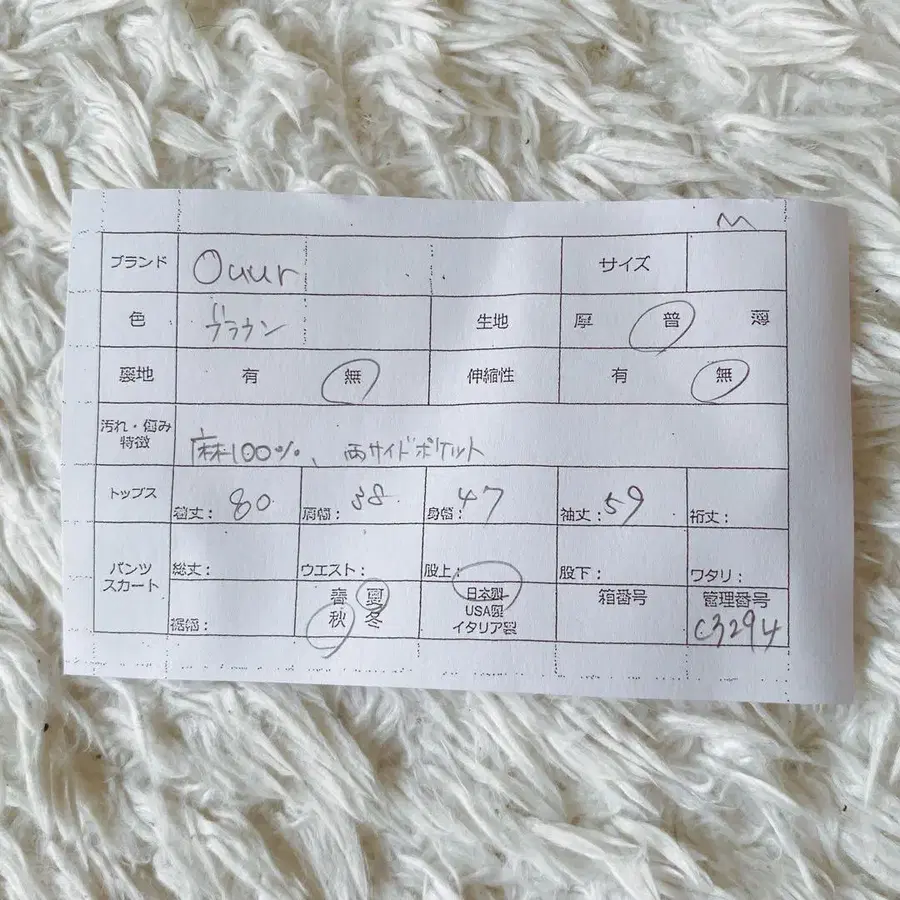 M
ブランド Ouur サイズ
色 ブラウン 生地 厚 普 薄
裏地 有 無 伸縮性 有 無
汚れ・傷み
特徴 麻100%、両サイドポケット
トップス 着丈: 80 肩幅: 38 身幅: 47 袖丈: 59 裄丈:
パンツ
スカート
総丈: ウエスト: 股上: 股下: ワタリ:
裾幅:
春 夏
秋 冬
日本製
USA製
イタリア製
箱番号
管理番号
C3294